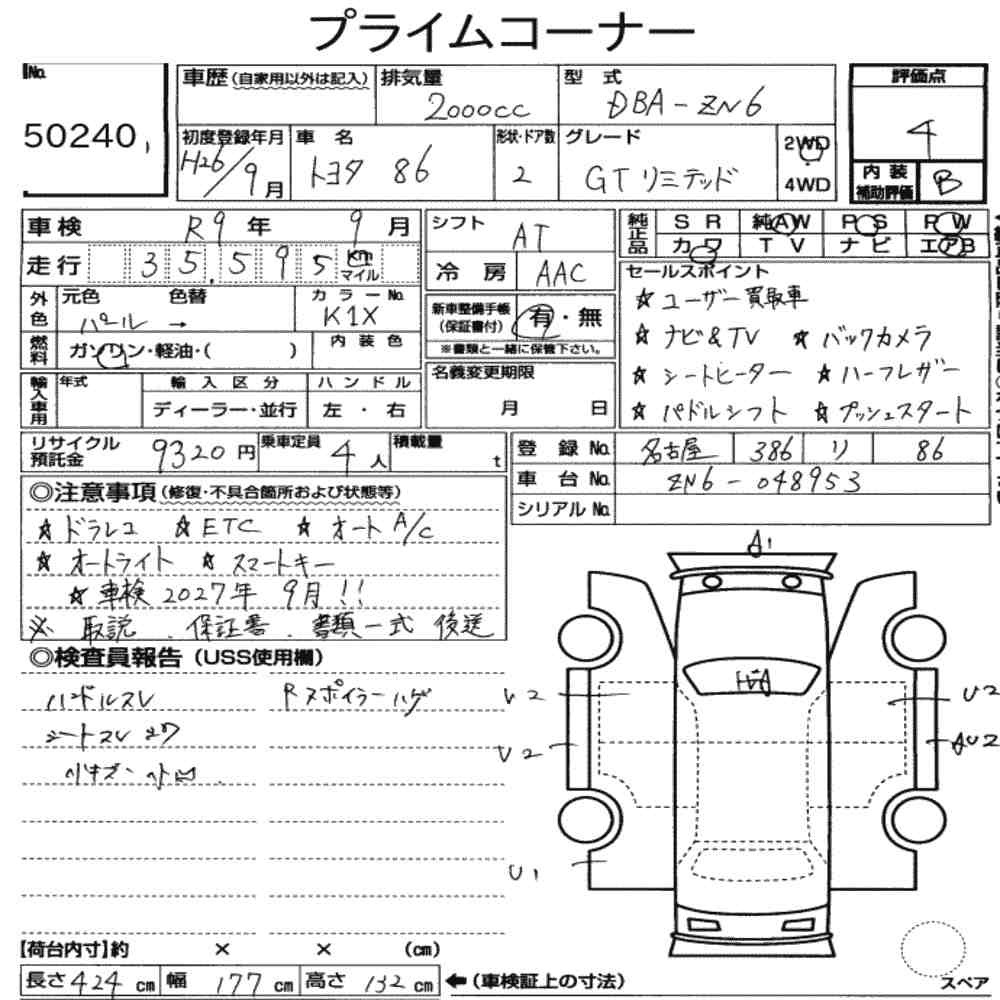 プライムコーナー
No. 50240,
車歴(自家用以外は記入) 排気量 2000cc 型 式 DBA-ZN6
評価点 4
初度登録年月 H26/9月 車 名 トヨタ 86 形状・ドア数 2 グレード GTリミテッド 2WD 4WD
内装補助評価 B
車検 R9年 9月
走行 35,595 km マイル
シフト AT
冷 房 AAC
純正品 SR 純AW PS PW
カワ TV ナビ エアB
外色 元色 色替 パール → カラーNo. K1X
燃料 ガソリン・軽油・( ) 内装色
新車整備手帳(保証書付) 有・無
※書類と一緒に保管下さい。
輸入車用 年式 輸入区分 ハンドル
ディーラー・並行 左・右
名義変更期限 月 日
セールスポイント
☆ユーザー買取車
☆ナビ&TV ☆バックカメラ
☆シートヒーター ☆ハーフレザー
☆パドルシフト ☆プッシュスタート
リサイクル預託金 9320円 乗車定員 4人 積載量 t
登録No. 名古屋 386 リ 86
車台No. ZN6-048953
シリアルNo.
◎注意事項(修復・不具合箇所および状態等)
☆ドラレコ ☆ETC ☆オートA/C
☆オートライト ☆スマートキー
☆車検2027年 9月!!
※ 取説、保証書、書類一式 後送
◎検査員報告(USS使用欄)
ハンドルスレ Rスポイラーハゲ
シートスレ
A1
U2 U2
U2 AU2
U1
【荷台内寸】約 × × (cm)
長さ424cm 幅177cm 高さ132cm ←(車検証上の寸法)
スペア